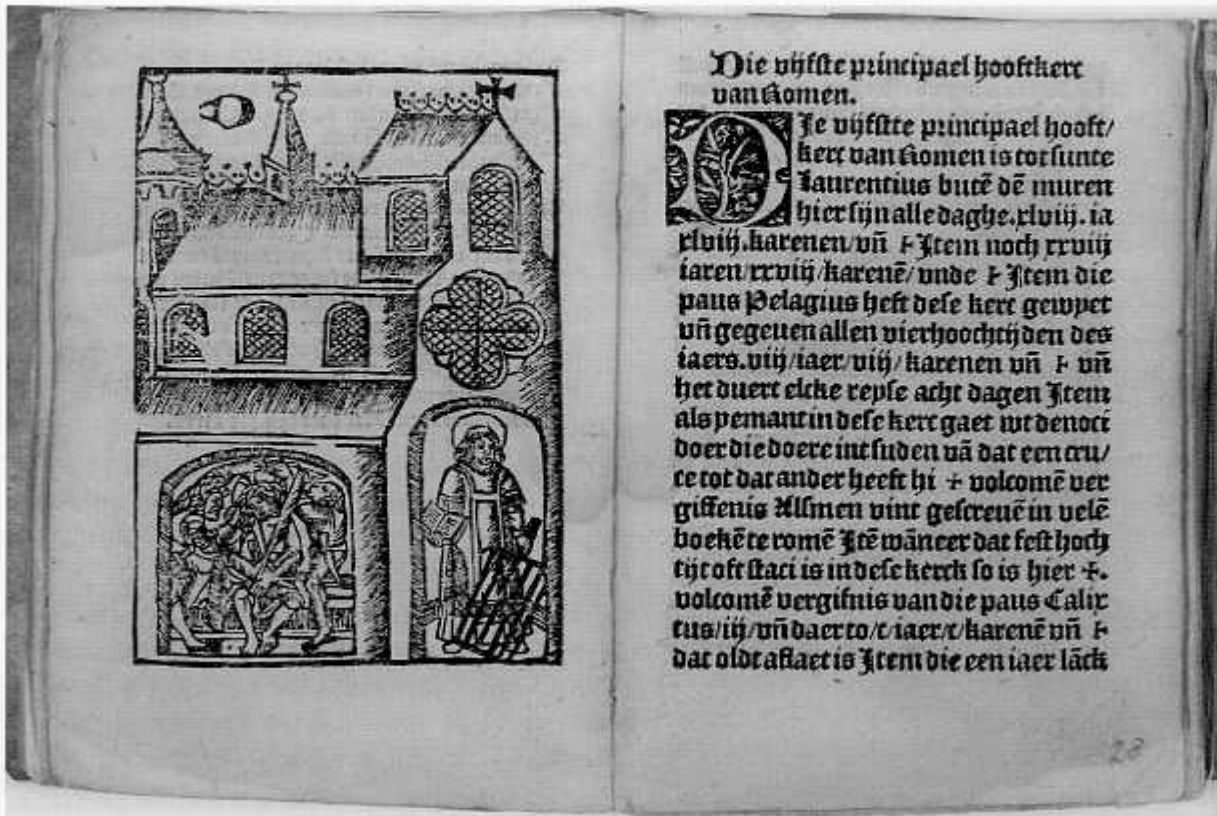 Die vijfste principael hooftkerc
van Romen.
DJe vijfste principael hooft/
kerc van Romen is tot sunte
Laurentius butē dē muren
hier sijn alle daghe.xlviij. ia
xlviij. karenen/ vñ Jtem noch xxviij
iaren/ xxviij/ karenē/ vnde Jtem die
paus Pelagius heft dese kerc gewyet
vñ gegeuen allen vierhoochtijden des
iaers. viij/ iaer/ viij/ karenen vñ vñ
het duert elcke reyse acht dagen Jtem
als yemant in dese kerc gaet wt denoci
doer die doere int suden vā dat een cru/
ce tot dat ander heeft hi + volcomē ver
giffenis Alsmen vint gescreuē in velē
boekē te romē Jtē wāneer dat fest hoch
tijt oft staci is in dese kerck so is hier +.
volcomē vergifnis van die paus Calix
tus/ iij/ vñ daer to/ c/ iaer/ c/ karenē vñ
dat oldt aflaet is Jtem die een iaer lāck
28